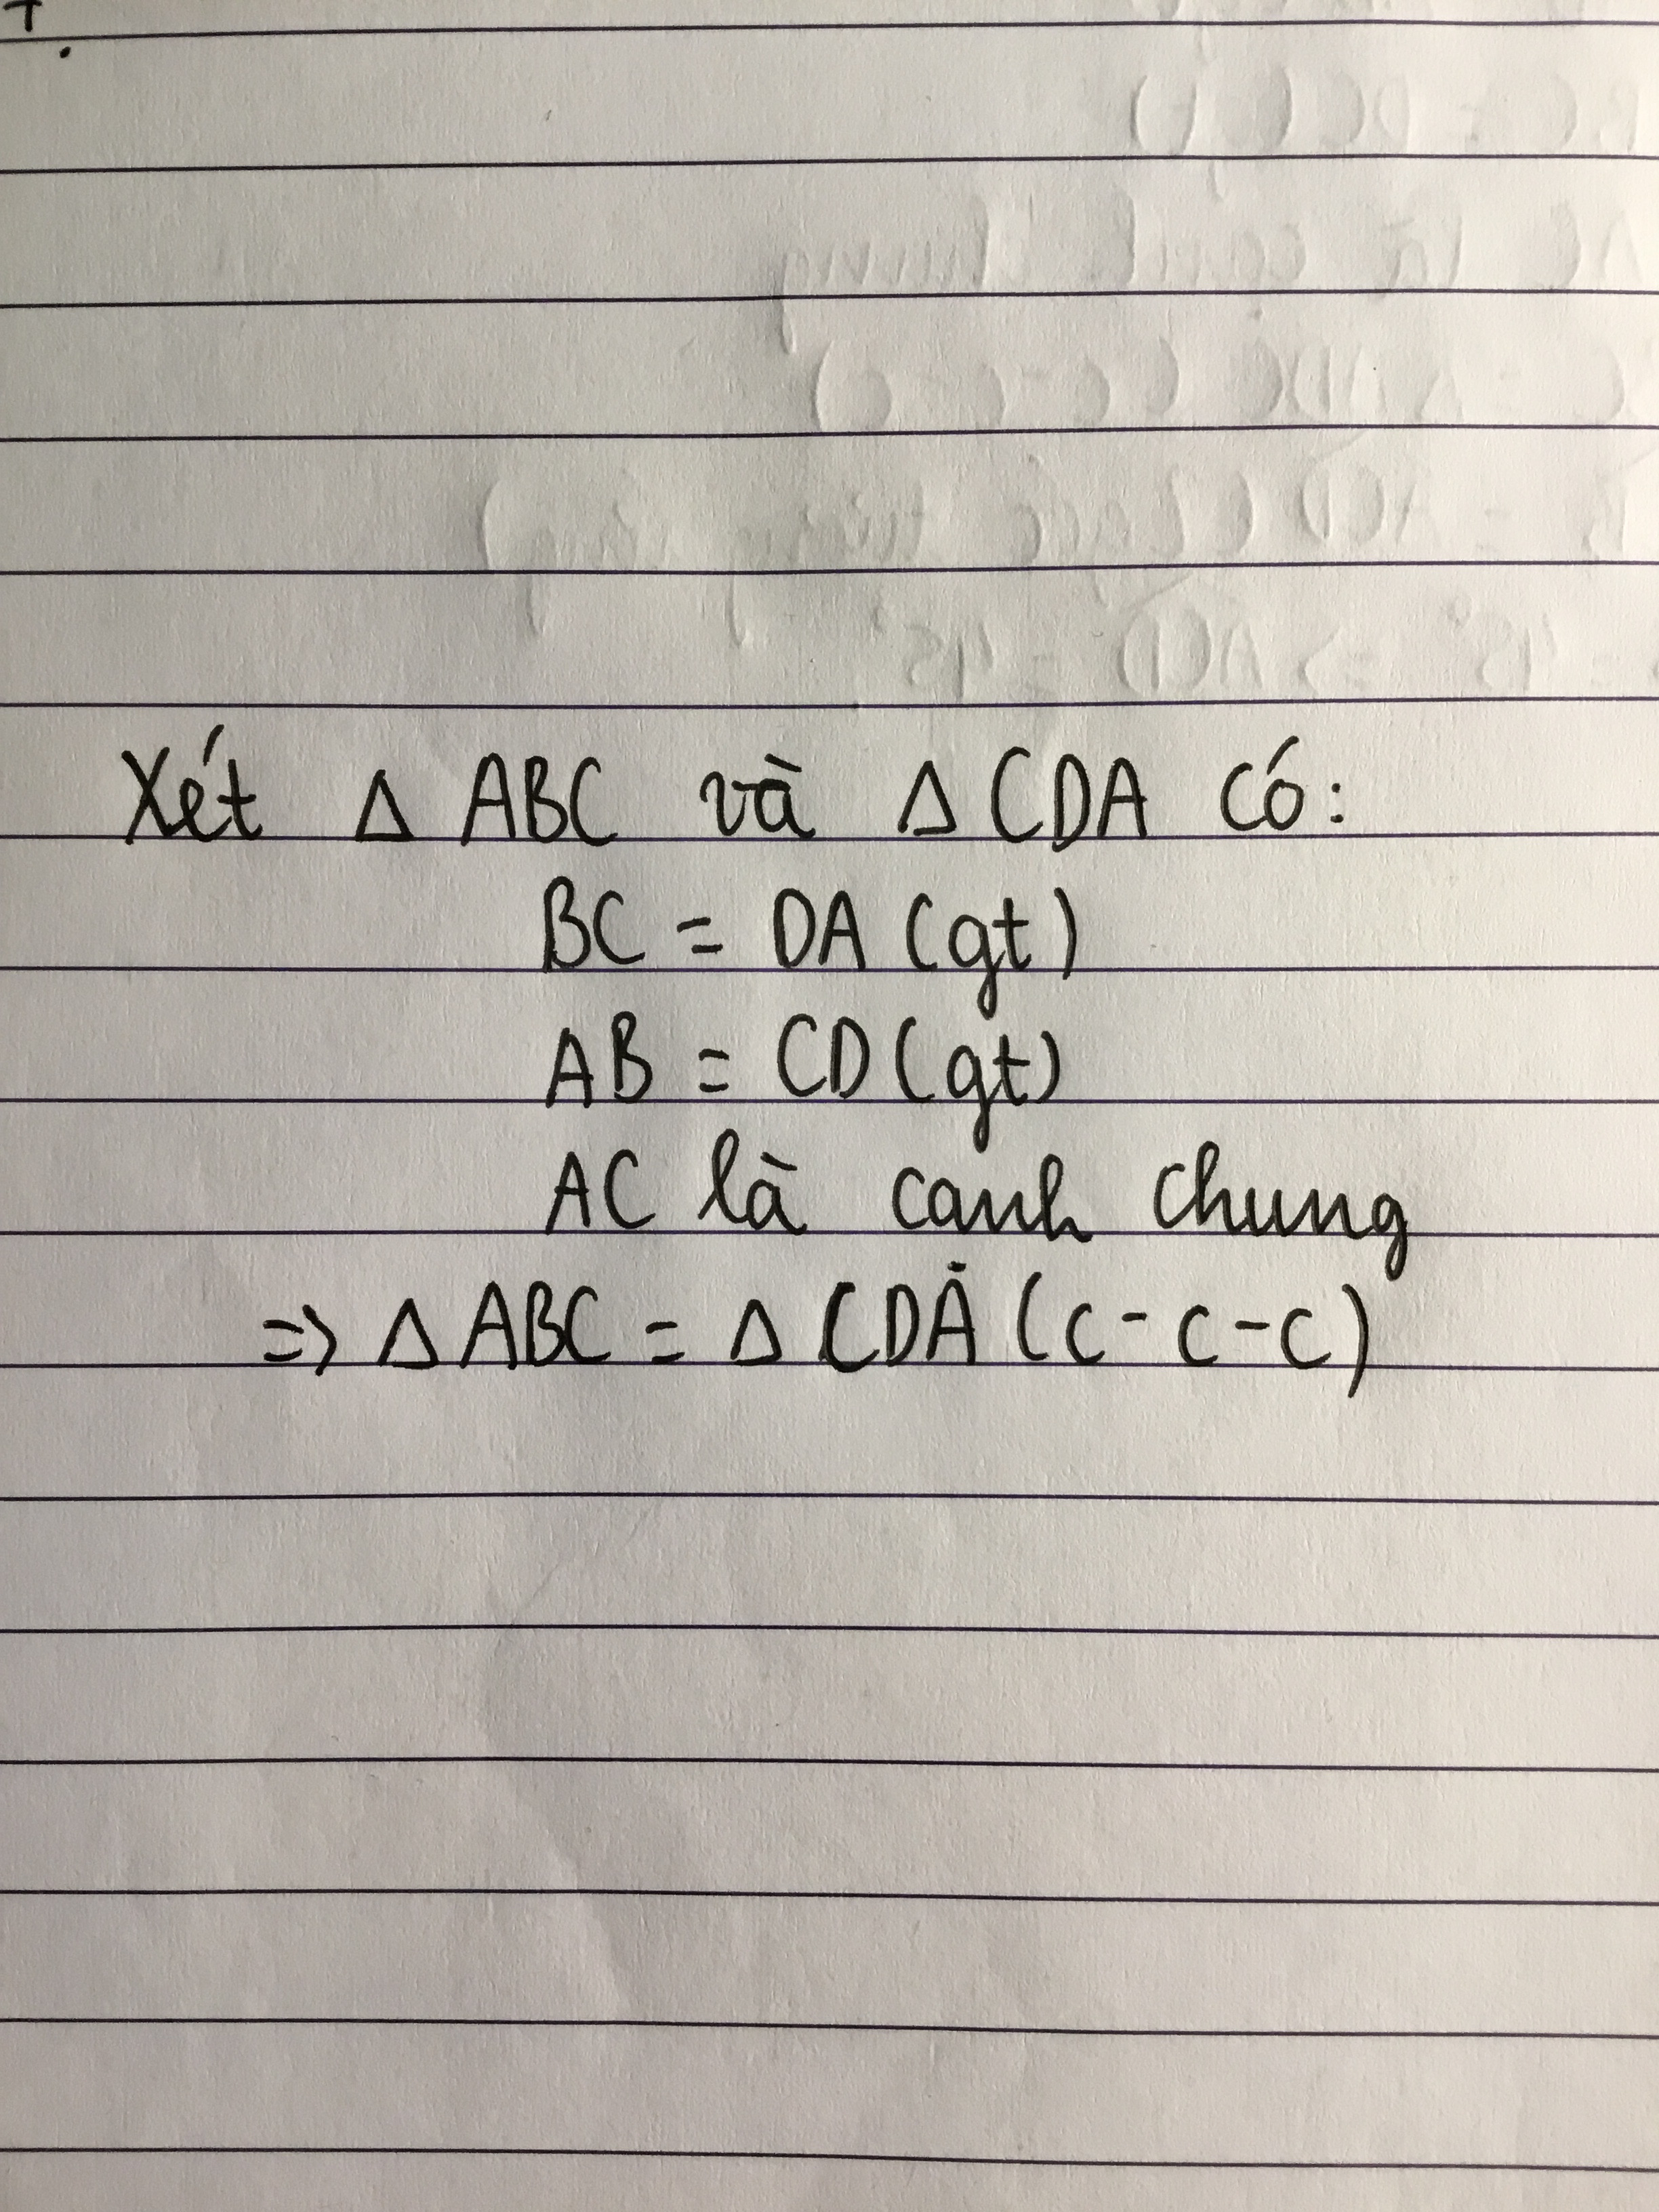 Xét Δ ABC và Δ CDA có:
BC = DA (gt)
AB = CD (gt)
AC là cạnh chung
=> Δ ABC = Δ CDA (c-c-c)